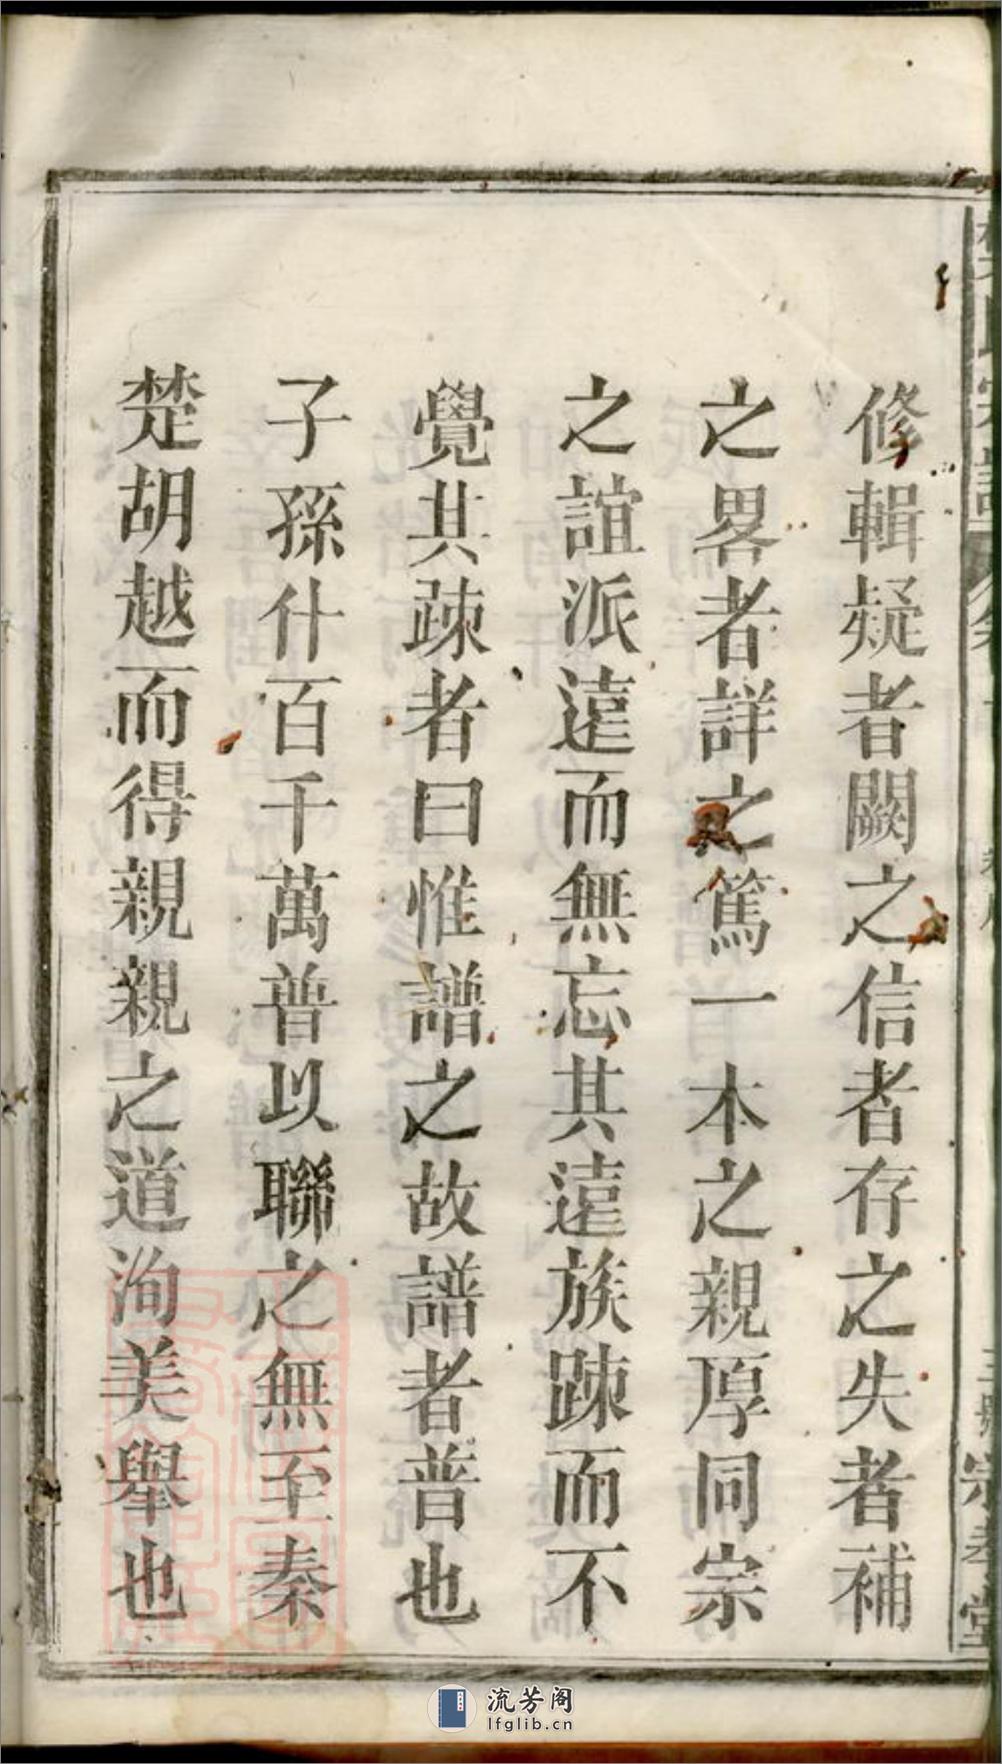 修輯疑者闕之信者存之失者補
之畧者詳之篤一本之親厚同宗
之誼派遠而無忘其遠族踈而不
覺其踈者曰惟譜之故譜者普也
子孫什百千萬普以聯之無至秦
楚胡越而得親親之道洵美舉也
流芳阁
lfglib.cn